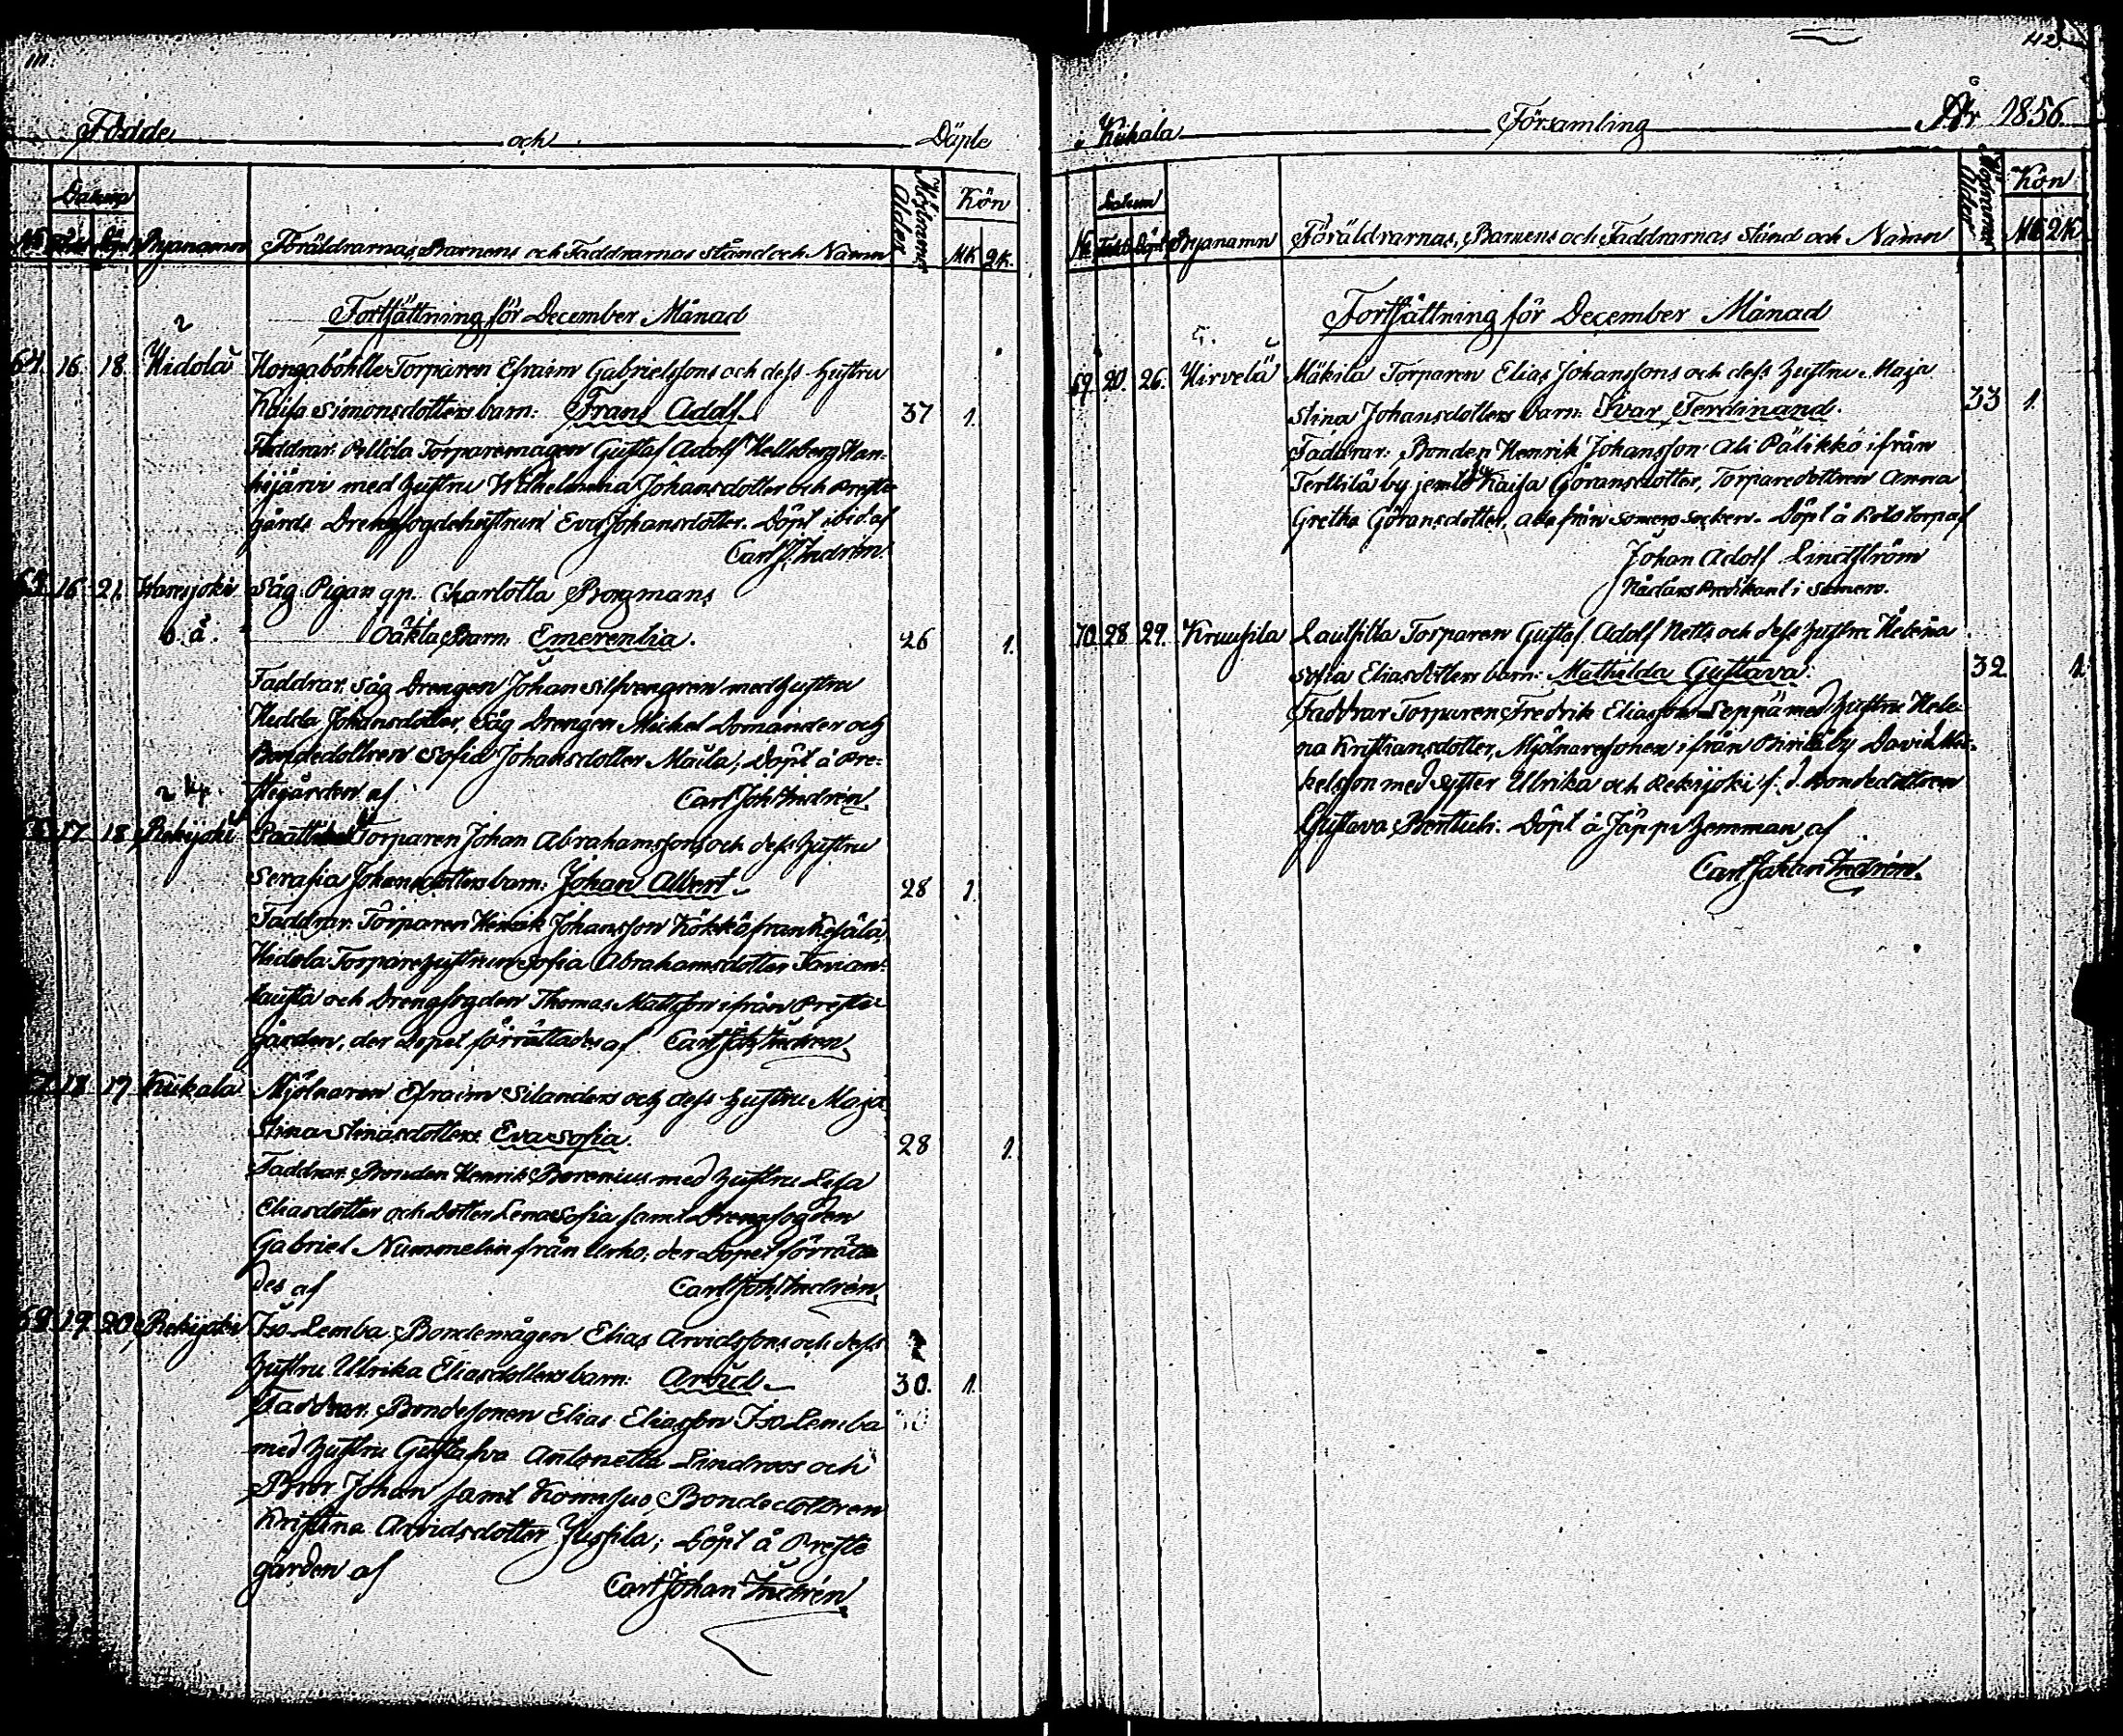 111.
Födde och Döpte
Datum Kön
No Född Döpt Byanamn Föräldrarnas, Barnens och Faddrarnas stånd och Namn Modrens Ålder MK QK.
Fortsättning för December Månad
2
64. 16. 18. Hidola Torparen Efraim Gabrielssons och dess hustru
Kaisa Simonsdotters barn: Frans Adolf 37 1.
Faddrar: Torparemågen Gustaf Adolf Hellsberg Han-
kijärvi med hustru Wilhelmina Johansdotter och Preste-
gårds Drengfogdehustrun Eva Johansdotter. Döpt ibid. af
Carl J. Indrén.
65. 16. 21. Waresjoki Såg Pigan gp. Charlotta Borgmans
o. ä. Oäkta Barn: Emerentia. 26 1.
Faddrar: Såg Drengen Johan Silfvengren med hustru
Hedda Johansdotter, Såg Drengen Michel Domander och
Bondedottren Sofia Johansdotter Maila; Döpt å Pre-
stegården af Carl Joh. Indrén
2 kp.
66. 17. 18. Rekijoki Torparen Johan Abrahamssons och dess hustru
Serafia Johansdotters barn: Johan Albert 28 1.
Faddrar: Torparen Henrik Johansson Kökkö från Kesälä,
Hidola Torparehustrun Sofia Abrahamsdotter Tavian-
kausta och Drengfogden Thomas Mattsson ifrån Preste-
gården, der Dopet förrättades af Carl Joh. Indrén
67. 18. 19. Kiikala Mjölnaren Efraim Silanders och dess hustru Maja
Stina Stinasdotters Eva Sofia. 28 1.
Faddrar: Bonden Henrik Berenius med hustru Lisa
Eliasdotter och dotter Lena Sofia samt Drengfogden
Gabriel Nummelin från Urho; der Dopet förrätta-
des af Carl Joh. Indrén
68. 19. 20. Rekijoki Iso Lemba Bondemågen Elias Arvidssons och dess
hustru Ulrika Eliasdotters barn: Arvid 30. 1.
Faddrar: Bondesonen Elias Eliasson Iso Lemba
med hustru Gustafva Antonetta Lindroos och
Bror Johan samt Bondedottren
Kristina Arvidsdotter Jussila; Döpt å Preste
gården af
Carl Johan Indrén
112.
i Kiikala Församling År 1856.
Datum Kön
No Född Döpt Byanamn Föräldrarnas, Barnens och Faddrarnas Stånd och Namn Modrens Ålder MK QK
Fortsättning för December Månad
5.
69. 20. 26. Hirvelä Mäkilä Torparen Elias Johanssons och dess hustru Maja
Stina Johansdotters barn: Ivar Ferdinand. 33 1.
Faddrar: Bonden Henrik Johansson Ali Pälikkö ifrån
Terttilä by jemte Kaisa Göransdotter, Torparedottren Anna
Gretha Göransdotter, alla från Somero Socken. Döpt å Rotstorpa af
Johan Adolf Lindström
Nådårs Predikant i Somero.
70. 28. 29. Kruusila Lautsilla Torparen Gustaf Adolf Netts och dess hustru Helena
Sofia Eliasdotters barn: Mathilda Gustava. 32. 1.
Faddrar Torparen Fredrik Eliasson Seppä med hustru Hele-
na Kristiansdotter, Mjölnaresonen ifrån by David Mi-
kelsson med syster Ulrika och Rekijoki f. d. Bondedottren
Gustava Döpt å Jäppi Hemman af
Carl Johan Indrén.